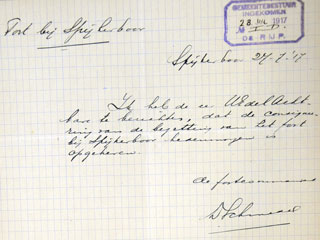 Fort bij Spijkerboor
GEMEENTEBESTUUR
INGEKOMEN
28 JUL 1917
No
DE RIJP.
Spijkerboor 27/7 '17
Ik heb de eer UEdelAcht-
bare te berichten, dat de consigne-
ring van de bezetting van het fort
bij Spijkerboor hedenmorgen is
opgeheven.
de fortcommandant